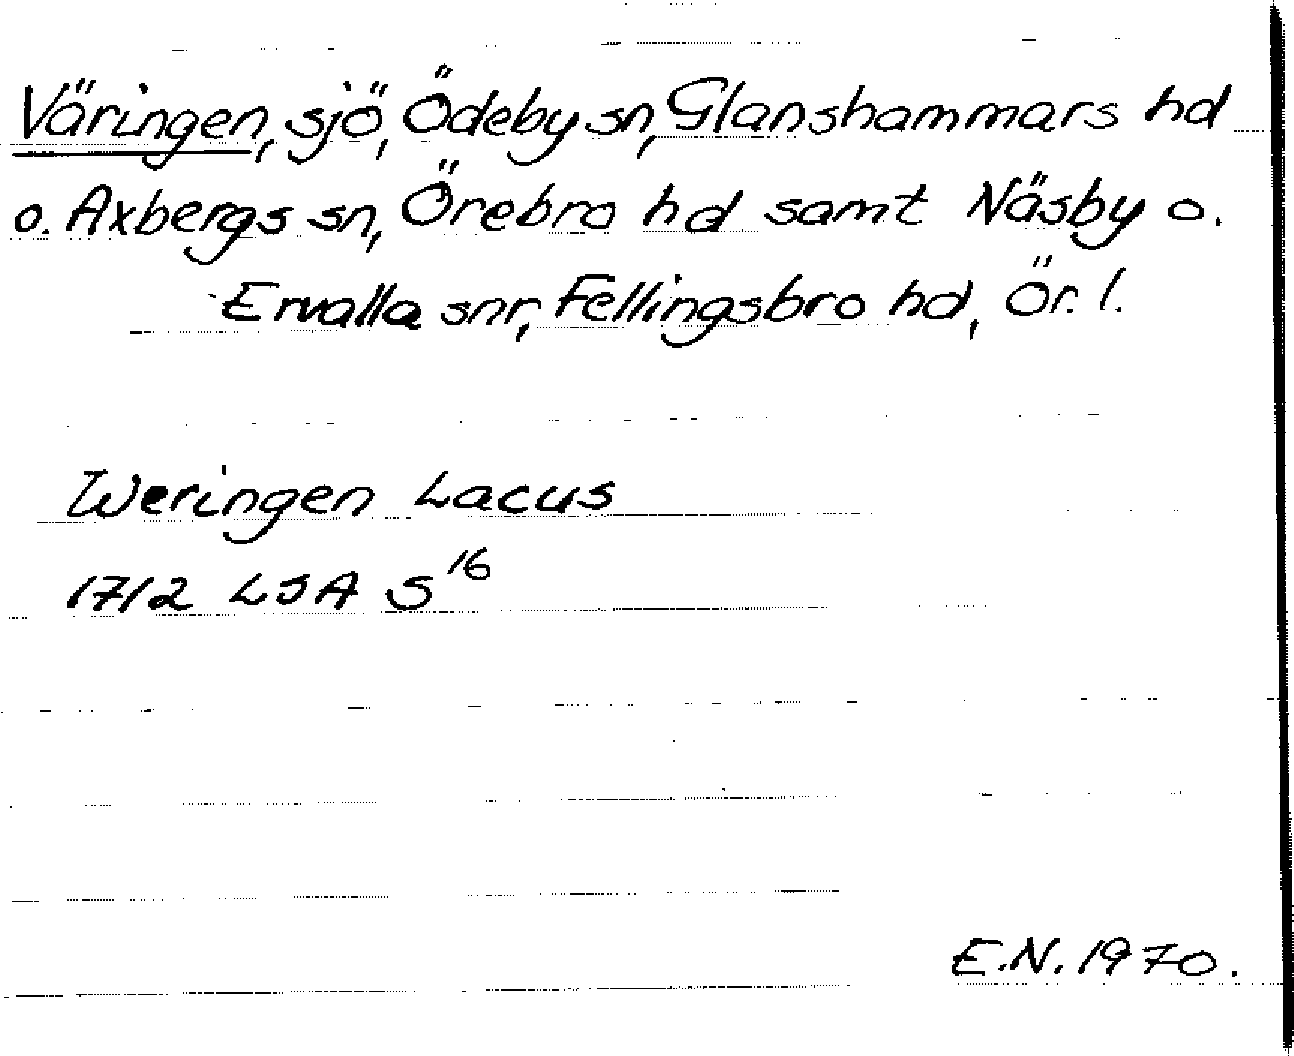 Väringen, sjö, Ödeby sn, Glanshammars hd
o. Axbergs sn, Örebro hd samt Näsby o.
Ervalla snr, Fellingsbro hd, Ör. l.
Weringen Lacus
1712 LSA S16
E.N. 1970.